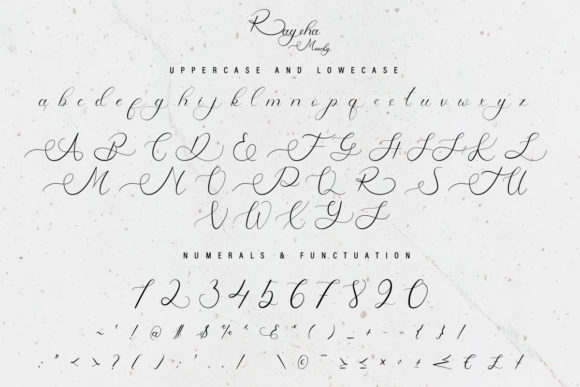 Raysha
Moody
UPPERCASE AND LOWECASE
a b c d e f g h i j k l m n o p q e s t u v w x y z
A B C D E F G H I J K L
M N O P Q R S T U
V W X Y Z
NUMERALS & FUNCTUATION
1 2 3 4 5 6 7 8 9 0
~ ' ! @ # $ % ^ & * ( ) _ + - = { } |
: " < > ? [ ] ; ' , . /